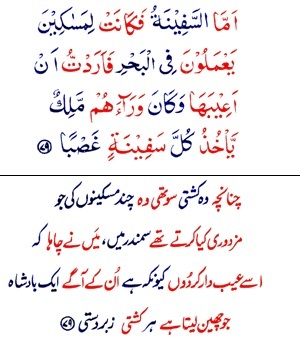 اَمَّا السَّفِیْنَةُ فَكَانَتْ لِمَسٰكِیْنَ
یَعْمَلُوْنَ فِی الْبَحْرِ فَاَرَدْتُّ اَنْ
اَعِیْبَهَا وَكَانَ وَرَآءَهُمْ مَّلِكٌ
یَّاْخُذُ كُلَّ سَفِیْنَةٍ غَصْبًا ﴿۷۹﴾
چنانچہ وہ کشتی سو تھی وہ چند مسکینوں کی جو
مزدوری کیا کرتے تھے سمندر میں، میں نے چاہا کہ
اسے عیب دار کردوں کیونکہ ہے اُن کے آگے ایک بادشاہ
جو چھین لیتا ہے ہر کشتی زبردستی ﴿۷۹﴾